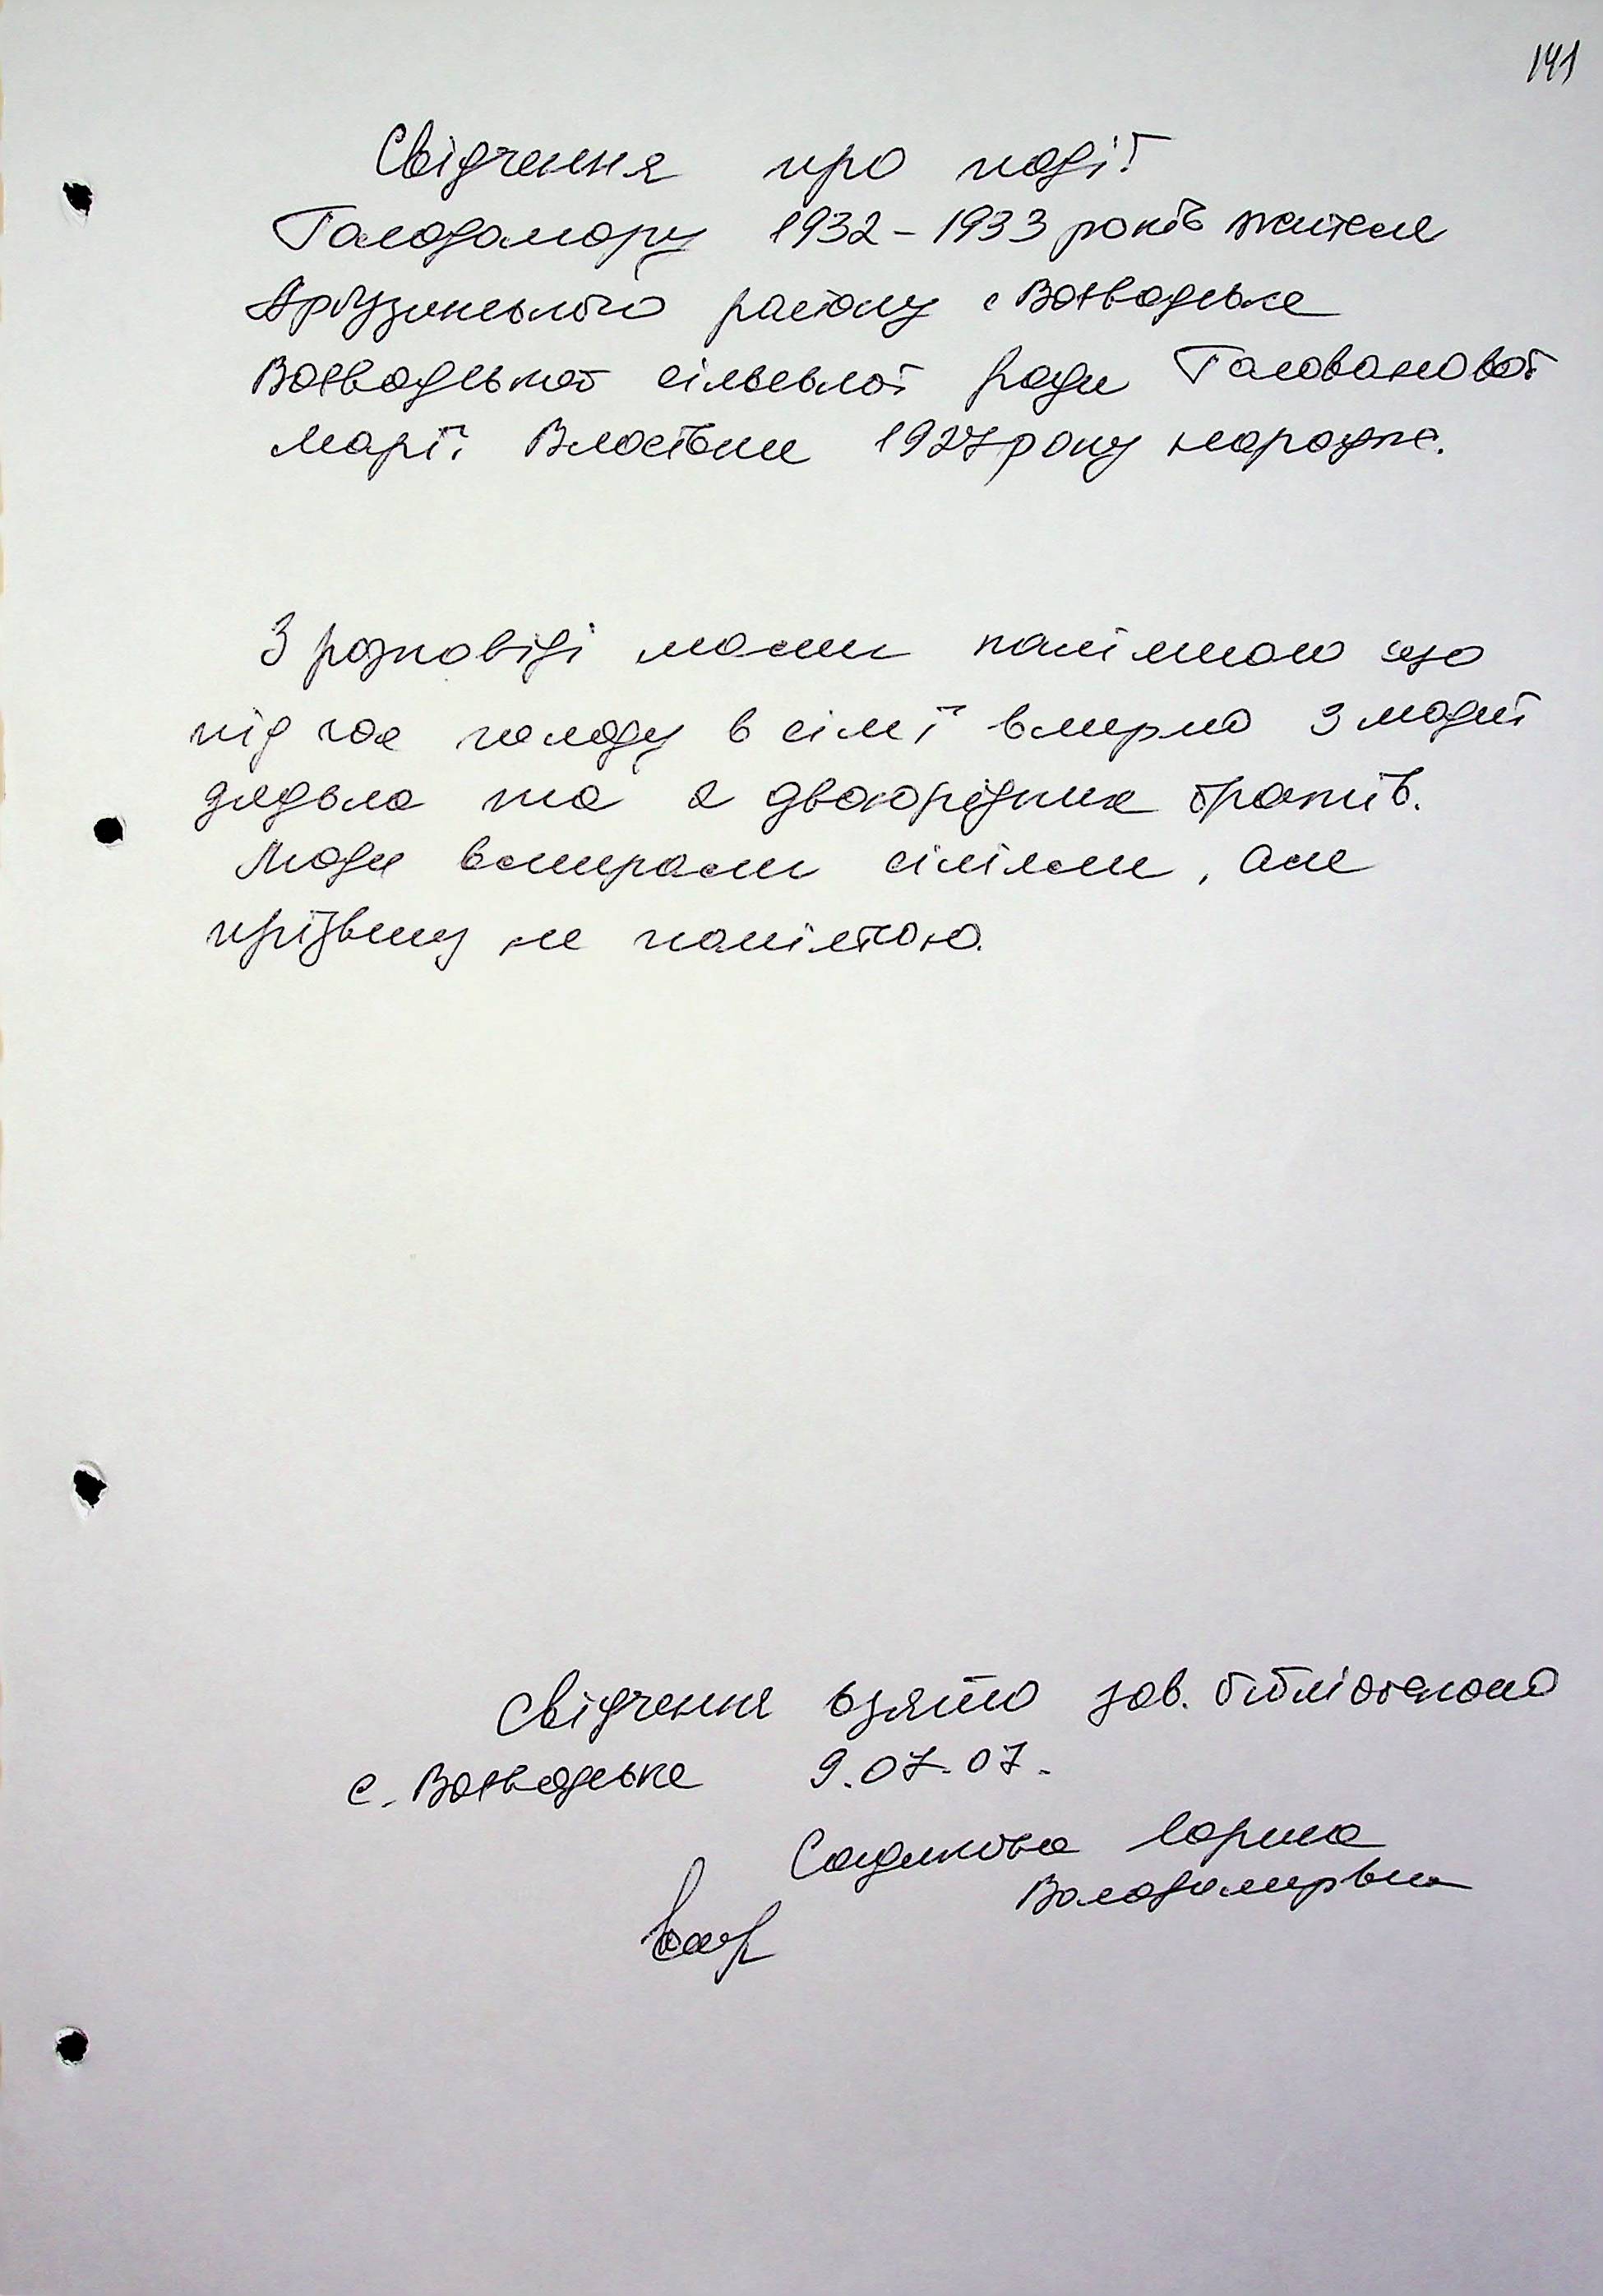 141
Свідчення про події
Голодомору 1932-1933 років жителя
Арбузинського району с Воєводське
Воєводської сільської ради Головановой
Марії Власівни 1927 року народже.
З розповіді мами памʼятаю що
під час голоду в сімʼї вмерло 3 людей
дядько та 2 двоюрідних братів.
Люди вмирали сімʼями, але
прізвищ не памʼятаю.
Свідчення взято зав. бібліотекою
с. Воєводське 9.07.07.
Садикова Лариса
Володимирівна